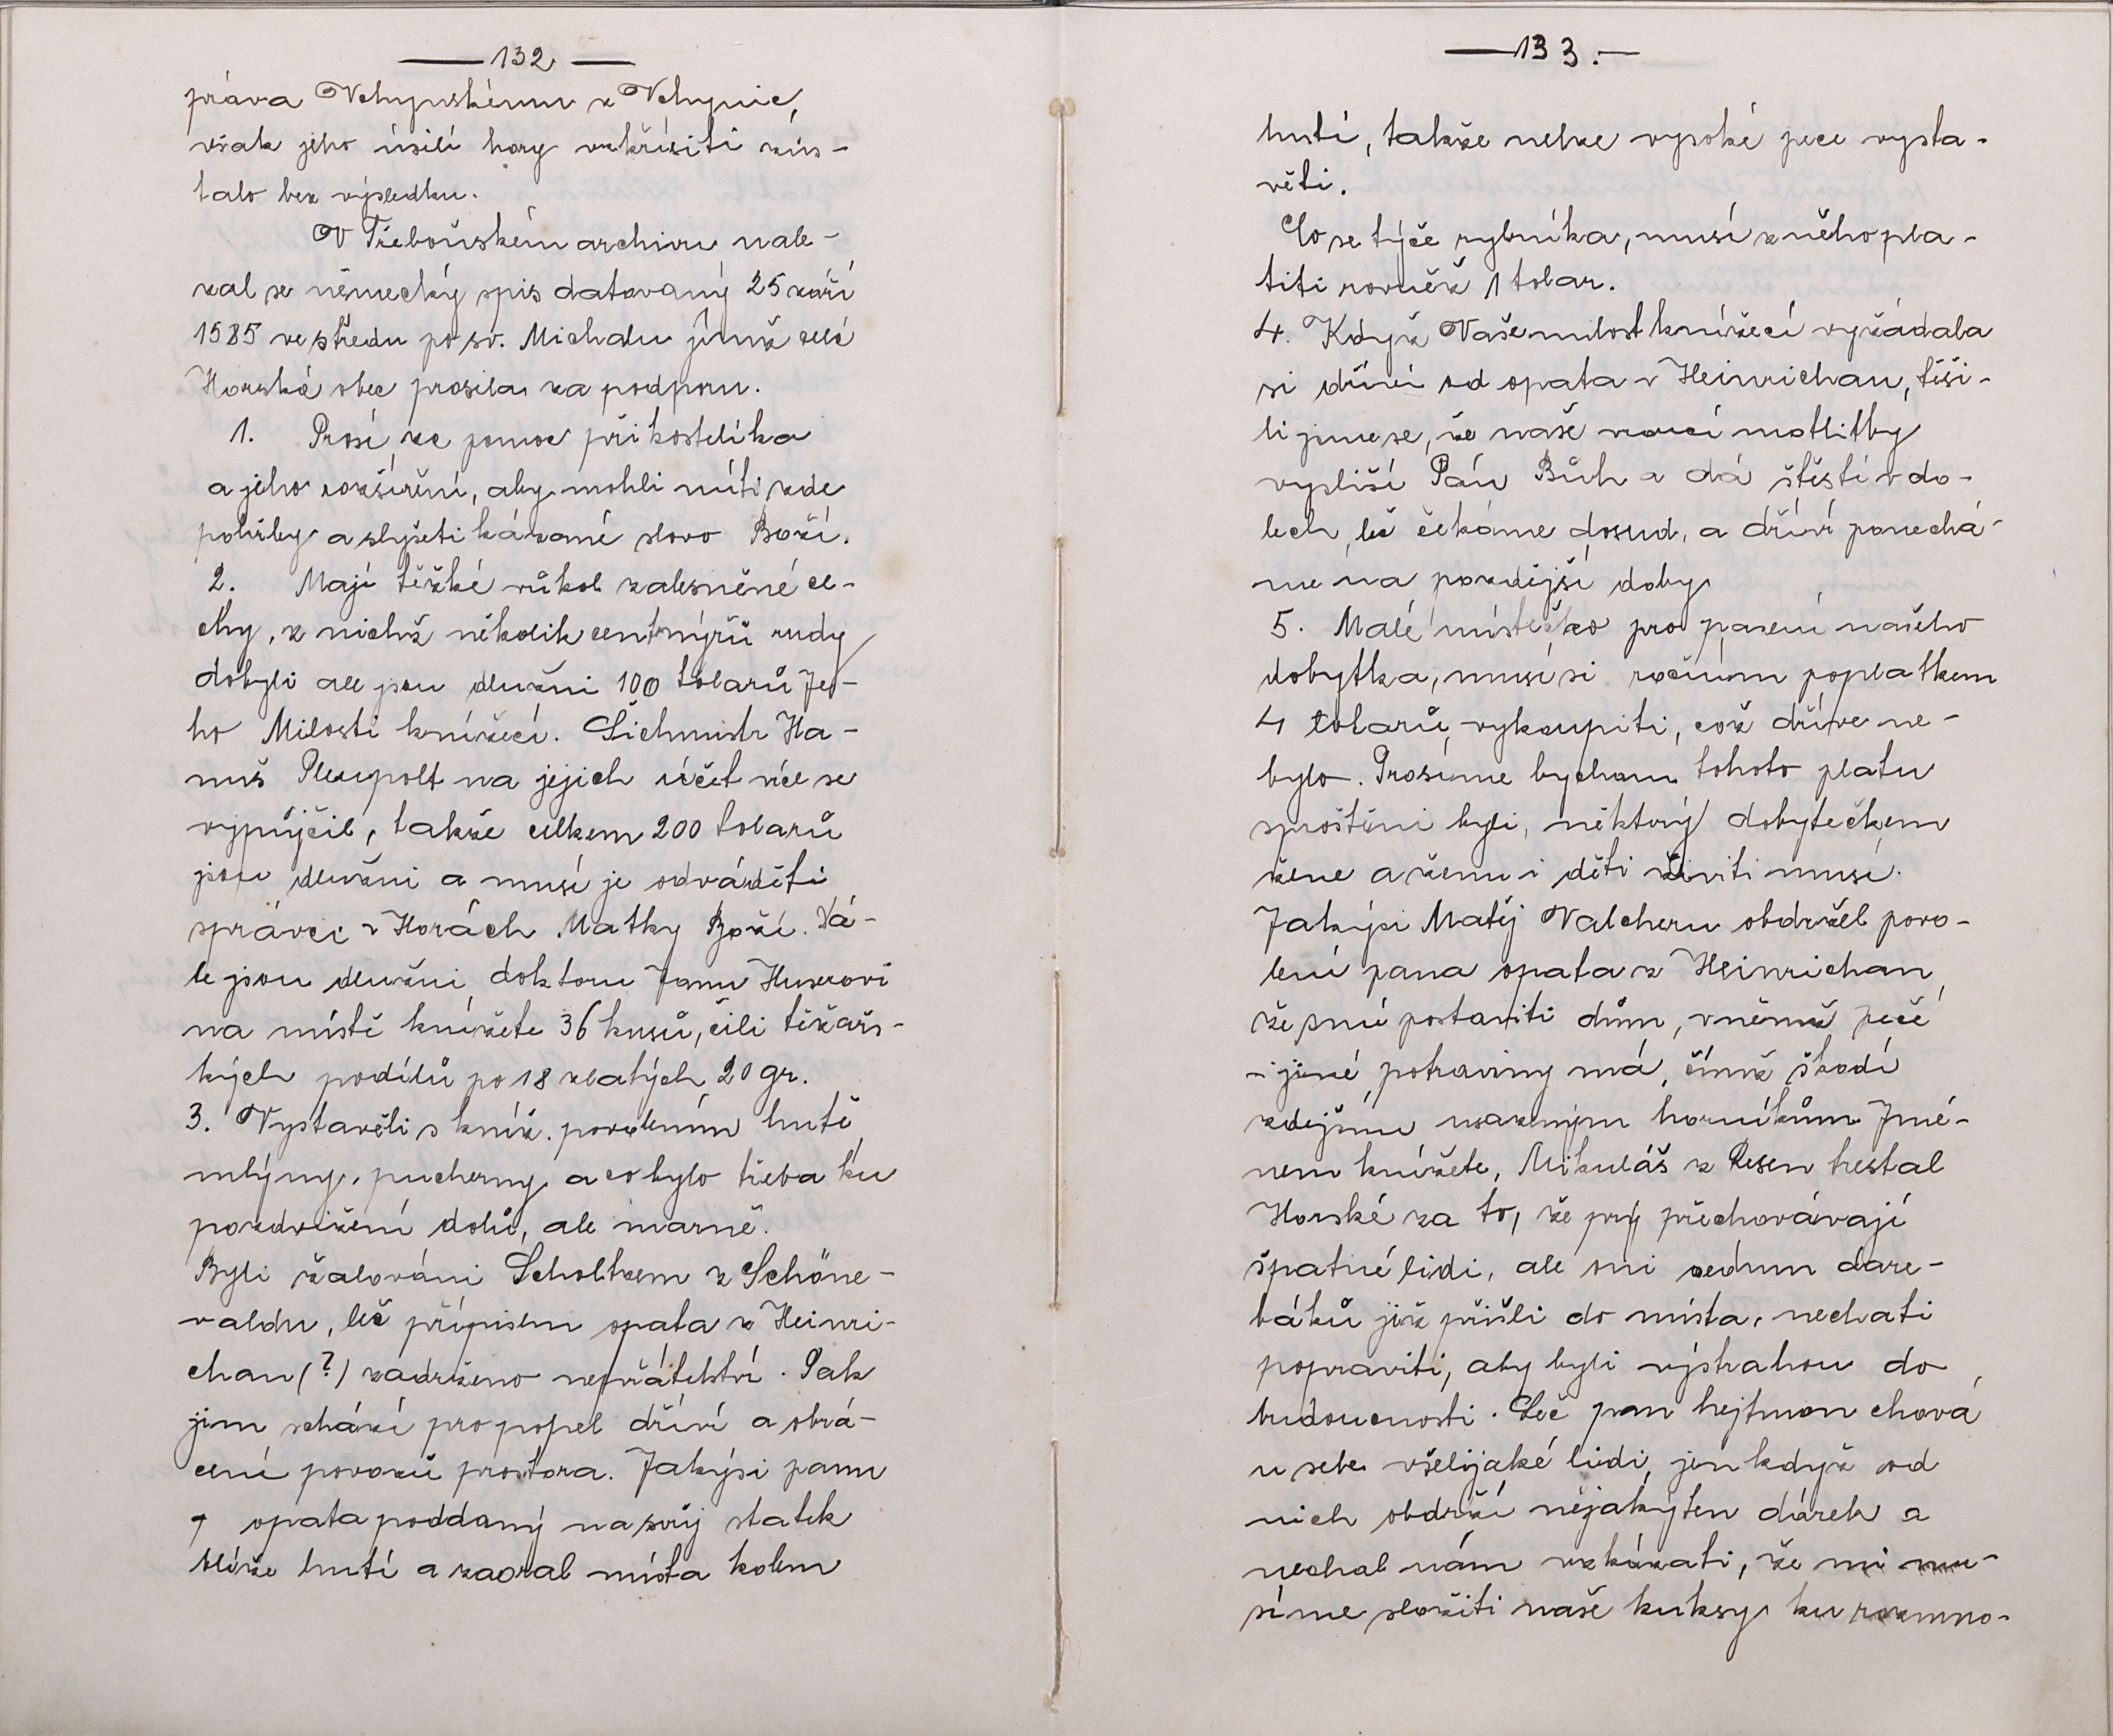 — 132 —
práva Vchynskému z Vchynic,
však jeho úsilí hory vzkřísiti zůs-
talo bez výsledku.
V Třeboňském archivu nale-
zal se německý spis datovaný 25 září
1585 ve středu po sv. Michalu jímž celá
Horská obec prosila za podporu.
1. Prosí za pomoc při kostelíka
a jeho rozšíření, aby mohli míti zde
pohřby a slyšeti kázané slovo Boží.
2. Mají těžké vůkol zalesněné ce-
chy, z nichž několik centnýřů rudy
dobyli ale jsou dlužni 100 tolarů Je-
ho Milosti knížecí. Šichmistr Ha-
nuš Pleupolt na jejich účet více se
vypůjčil, takže celkem 200 tolarů
jsou dlužni a musí je odváděti
správci v Horách Matky Boží. Dá-
le jsou dlužni doktoru Janu Huserovi
na místě knížete 36 kusů, čili těžařs-
kých podílů po 18 zlatých 20 gr.
3. Vystavěli s kníž. povolením hutě
mlýny, pucherny a co bylo třeba ku
pozdvižení dolů, ale marně.
Byli žalováni Scholtzem z Schöne-
valdu, leč přípisem opata z Heinri-
chau (?) zadrženo nepřátelství. Pak
jim schází pro popel dříví a obrá-
cení povozů prostora. Jakýsi panu
opata poddaný na svůj statek
blíže hutí a zaoral místa kolem
— 133. —
hutí, takže nelze vysoké pece vysta-
věti.
Co se týče rybníka, musí z něho pla-
titi rovněž 1 tolar.
4. Když Vaše milost knížecí vyžádala
si dříví od opata v Heinrichau, těši-
li jsme se, že naše vroucí motlitby
vysliší Pán Bůh a dá štěstí v do-
lech, leč čekáme dosud, a dříví ponechá-
me na pozdější doby.
5. Malé místečko pro pasení našeho
dobytka, musí si ročním poplatkem
4 tolarů, vykoupiti, což dříve ne-
bylo. Prosíme bychom tohoto platu
sproštěni byli, některý dobytečkem
žene a ženu i děti živiti musí.
Jakýsi Matěj Valcheru obdržel povo-
lení pana opata z Heinrichau,
že smí postaviti dům, v němž peče
i jiné potraviny má, čímž škodí
zdejším usazeným horníkům. Jmé-
nem knížete, Mikuláš z Resen trestal
Horské za to, že prý přechovávají
špatné lidi, ale oni sedum dare-
báků již přišli do místa, nechati
popraviti, aby byli výstrahou do
budoucnosti. Leč pan hejtman chová
u sebe všelijaké lidi, jen když od
nich obdrží nějakýten dárek a
nechal nám vzkázati, že mi mu-
síme složiti naše kuksy ku rozmno-